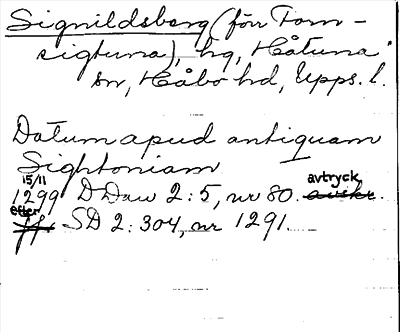 Signildsborg (förr Forn-
sigtuna), hg, Håtuna
sn, Håbo hd, Upps. l.
Datum apud antiquam
Sightoniam
15/11
1299 D Daw 2:5, nr 80. avtryck
efter SD 2:304, nr 1291.